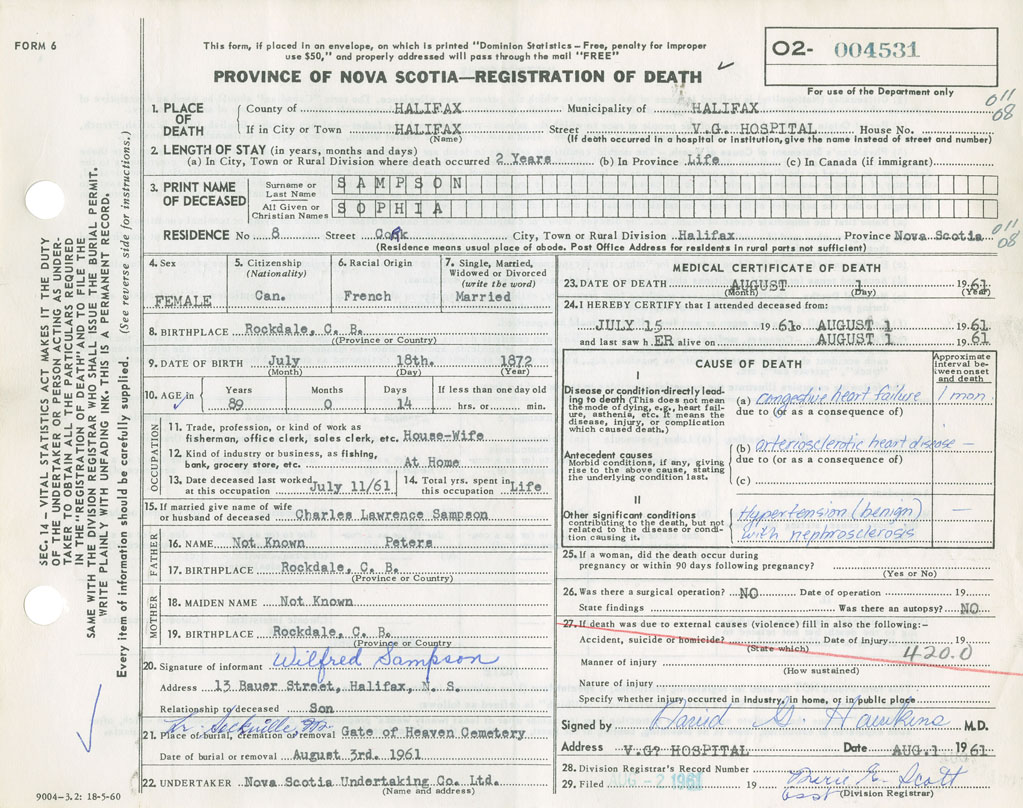 FORM 6
This form, if placed in an envelope, on which is printed "Dominion Statistics – Free, penalty for improper
use $50," and properly addressed will pass through the mail "FREE"
PROVINCE OF NOVA SCOTIA—REGISTRATION OF DEATH
O2- 004531
For use of the Department only
011
08
SEC. 14 – VITAL STATISTICS ACT MAKES IT THE DUTY
OF THE UNDERTAKER OR PERSON ACTING AS UNDER-
TAKER TO OBTAIN ALL THE PARTICULARS REQUIRED
IN THE "REGISTRATION OF DEATH" AND TO FILE THE
SAME WITH THE DIVISION REGISTRAR WHO SHALL ISSUE THE BURIAL PERMIT.
WRITE PLAINLY WITH UNFADING INK. THIS IS A PERMANENT RECORD.
Every item of information should be carefully supplied. (See reverse side for instructions.)
1. PLACE OF DEATH
County of HALIFAX Municipality of HALIFAX
If in City or Town HALIFAX Street V.G. HOSPITAL House No.
(Name) (If death occurred in a hospital or institution, give the name instead of street and number)
2. LENGTH OF STAY (in years, months and days)
(a) In City, Town or Rural Division where death occurred 2 Years (b) In Province Life (c) In Canada (if immigrant)
3. PRINT NAME OF DECEASED
Surname or Last Name SAMPSON
All Given or Christian Names SOPHIA
RESIDENCE No 8 Street CoRk City, Town or Rural Division Halifax Province Nova Scotia
011
08
(Residence means usual place of abode. Post Office Address for residents in rural parts not sufficient)
4. Sex FEMALE
5. Citizenship (Nationality) Can.
6. Racial Origin French
7. Single, Married, Widowed or Divorced (write the word) Married
8. BIRTHPLACE Rockdale, C. B.
(Province or Country)
9. DATE OF BIRTH July 18th. 1872
(Month) (Day) (Year)
10. AGE in Years 89 Months 0 Days 14 If less than one day old hrs. or min.
OCCUPATION
11. Trade, profession, or kind of work as
fisherman, office clerk, sales clerk, etc. House-Wife
12. Kind of industry or business, as fishing,
bank, grocery store, etc. At Home
13. Date deceased last worked at this occupation July 11/61
14. Total yrs. spent in this occupation Life
15. If married give name of wife
or husband of deceased Charles Lawrence Sampson
FATHER
16. NAME Not Known Peters
17. BIRTHPLACE Rockdale, C. B.
(Province or Country)
MOTHER
18. MAIDEN NAME Not Known
19. BIRTHPLACE Rockdale, C. B.
(Province or Country
20. Signature of informant Wilfred Sampson
Address 13 Bauer Street, Halifax, N. S.
Relationship to deceased Son
21. Place of burial, cremation or removal Gate of Heaven Cemetery
Date of burial or removal August 3rd. 1961
22. UNDERTAKER Nova Scotia Undertaking Co. Ltd.
(Name and address)
9004-3.2: 18-5-60
MEDICAL CERTIFICATE OF DEATH
23. DATE OF DEATH AUGUST 1 1961
(Month) (Day) (Year)
24. I HEREBY CERTIFY that I attended deceased from:
JULY 15 1961 to AUGUST 1 1961
and last saw h ER alive on AUGUST 1 1961
CAUSE OF DEATH
Approximate interval between onset and death
I
Disease or condition directly leading to death (This does not mean the mode of dying, e.g., heart failure, asthenia, etc. It means the disease, injury, or complication which caused death.)
(a) congestive heart failure 1 mon.
due to (or as a consequence of)
Antecedent causes
Morbid conditions, if any, giving rise to the above cause, stating the underlying condition last.
(b) arteriosclerotic heart disease –
due to (or as a consequence of)
(c)
II
Other significant conditions contributing to the death, but not related to the disease or condition causing it.
Hypertension (benign) –
with nephrosclerosis
25. If a woman, did the death occur during
pregnancy or within 90 days following pregnancy?
(Yes or No)
26. Was there a surgical operation? NO Date of operation 19
State findings Was there an autopsy? NO
27. If death was due to external causes (violence) fill in also the following:–
Accident, suicide or homicide? Date of injury 19
(State which)
420.0
Manner of injury
(How sustained)
Nature of injury
Specify whether injury occurred in Industry, in home, or in public place
Signed by David G Hawkins M.D.
Address V.G? HOSPITAL Date AUG. 1 1961
28. Division Registrar's Record Number
29. Filed AUG - 2 1961 19 Scott
(Division Registrar)